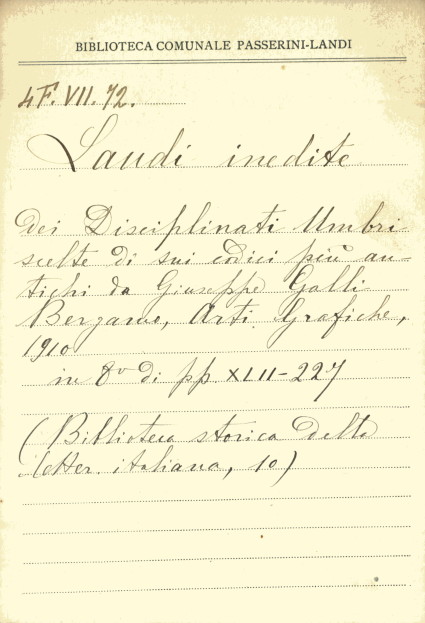 BIBLIOTECA COMUNALE PASSERINI-LANDI
4F. VII. 72.
Laudi inedite
dei Disciplinati Umbri
scelte di sui codici più an-
tichi da Giuseppe Galli
Bergamo, Arti Grafiche,
1910
in 8º di pp XLII-227
(Biblioteca storica della
letter. italiana, 10)